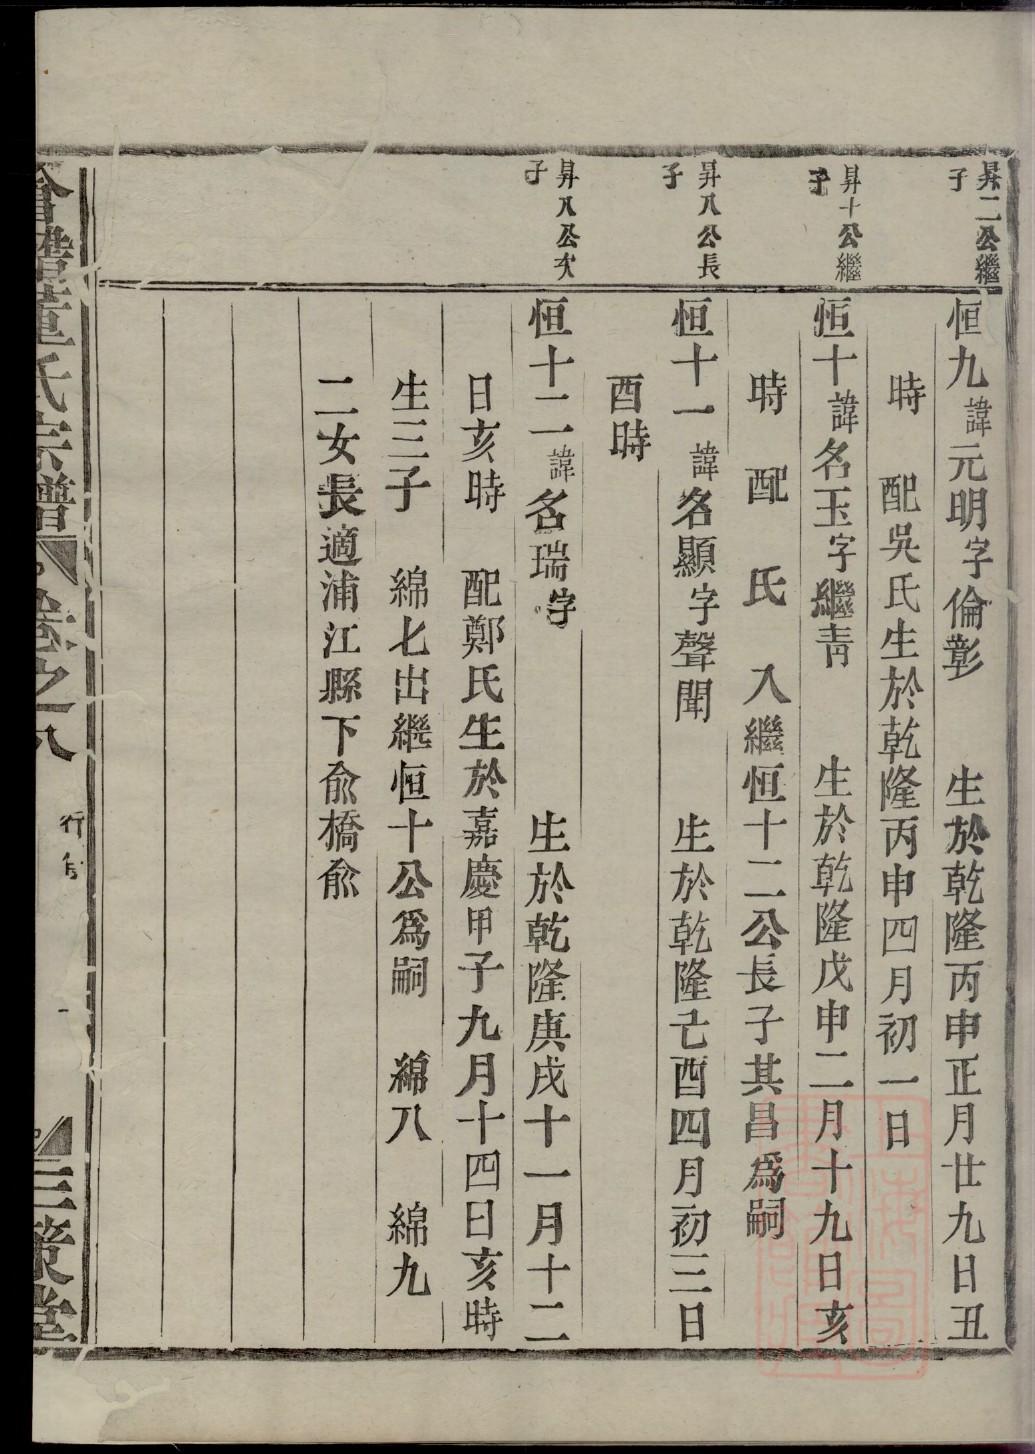 昇二公繼
子
恒九諱元明字倫彰 生於乾隆丙申正月廿九日丑
時 配吳氏生於乾隆丙申四月初一日
昇十公繼
子
恒十諱名玉字繼青 生於乾隆戊申二月十九日亥
時 配 氏 入繼恒十二公長子其昌爲嗣
昇八公長
子
恒十一諱名顯字聲聞 生於乾隆己酉四月初三日
酉時
昇八公次
子
恒十二諱名瑞字 生於乾隆庚戌十一月十二
日亥時 配鄭氏生於嘉慶甲子九月十四日亥時
生三子 綿七出繼恒十公爲嗣 綿八 綿九
二女長適浦江縣下俞橋俞
會稽董氏宗譜 卷之八 行 三策堂
上海圖